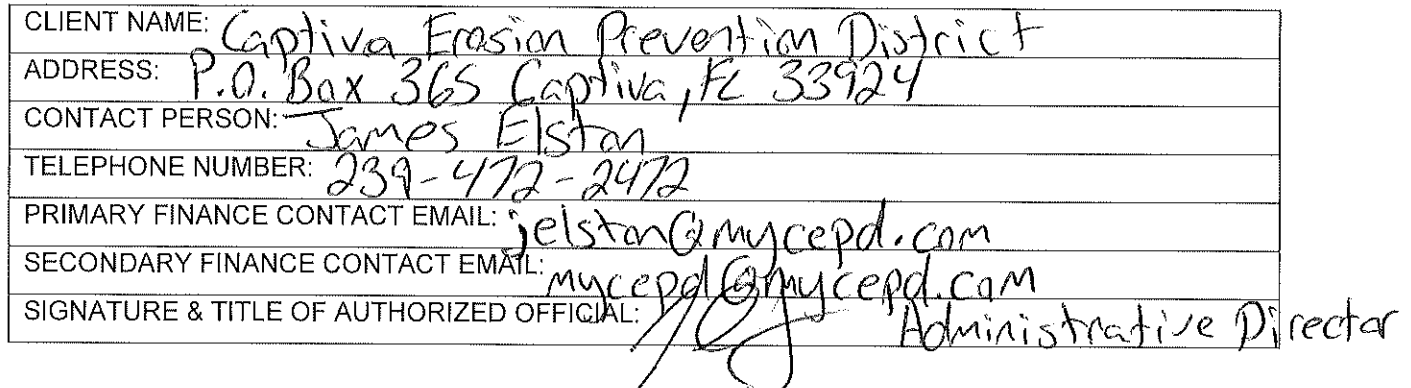 CLIENT NAME: Captiva Erosion Prevention District
ADDRESS: P.O. Box 365 Captiva, FL 33924
CONTACT PERSON: James Elston
TELEPHONE NUMBER: 239-472-2472
PRIMARY FINANCE CONTACT EMAIL: jelston@mycepd.com
SECONDARY FINANCE CONTACT EMAIL: mycepd@mycepd.com
SIGNATURE & TITLE OF AUTHORIZED OFFICIAL: Administrative Director